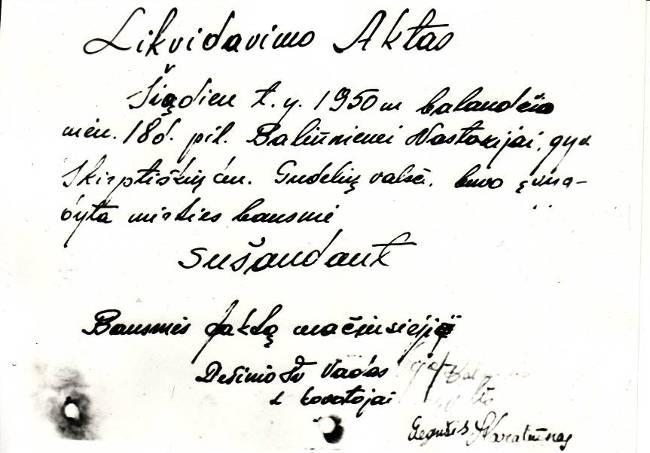 Likvidavimo Aktas
Šiądien t.y. 1950 m balandžio
mėn. 18 d. pil. Baliūnienei Nastazijai, gyv
Skirptiškių km. Gudelių valsč. buvo įvyk-
dyta mirties bausmė
sušaudant
Bausmės faktą mačiusieji
Dešimo Kv Vadas
2 kovotojai